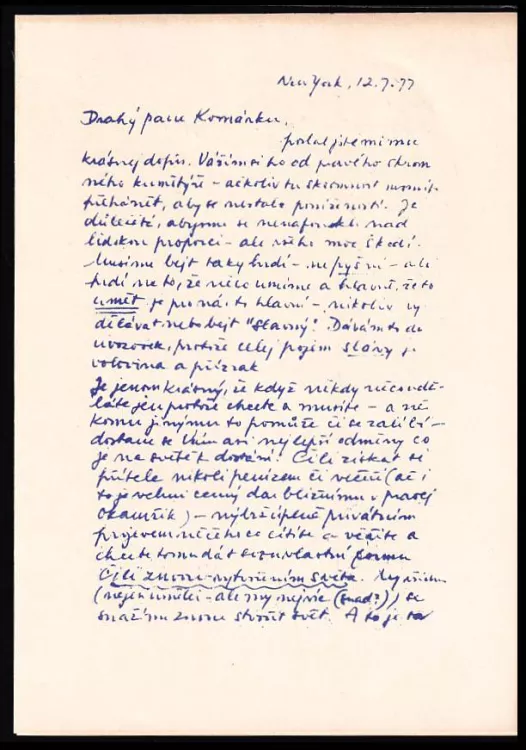 New York, 12.7.77
Drahý pane Komárku,
poslal jste mi moc
krásnej dopis. Vážím si ho od pravého skrom
ného kumštýře – ačkoliv tu skromnost nesmíte
přehánět, aby se nestala poníženosti. Je
důležité, abysme se nenafoukli nad
lidskou proporci – ale všeho moc škodí.
Musíme bejt taky hrdí – ne pyšní – ale
hrdí na to, že něco umíme a hlavně, že to
umět je pro nás to hlavní – nikoliv vy
dělávat nebo bejt "slavný". Dávám to do
uvozovek, protože celej pojem slávy je
volovina a přízrak
Je jenom krásný, že když někdy něco udě-
láte jen protože chcete a musíte – a ně
komu jinýmu to pomůže či se zalíbí –
dostane se Vám asi nejlepší odměny co
je na světě k dostání! Čili získat si
přítele nikoli penízem či věcí (ač i
to je velmi cenný dar bližnímu v pravej
okamžik) – nýbrž úplně privátním
projevem něčeho co cítíte a věříte a
chcete tomu dát svou vlastní formu
Čili znovu-vytvořením světa. My všichni
(nejen umělci – ale my nejvíc (snad?)) se
snažíme znovu stvořit svět. A to je ta